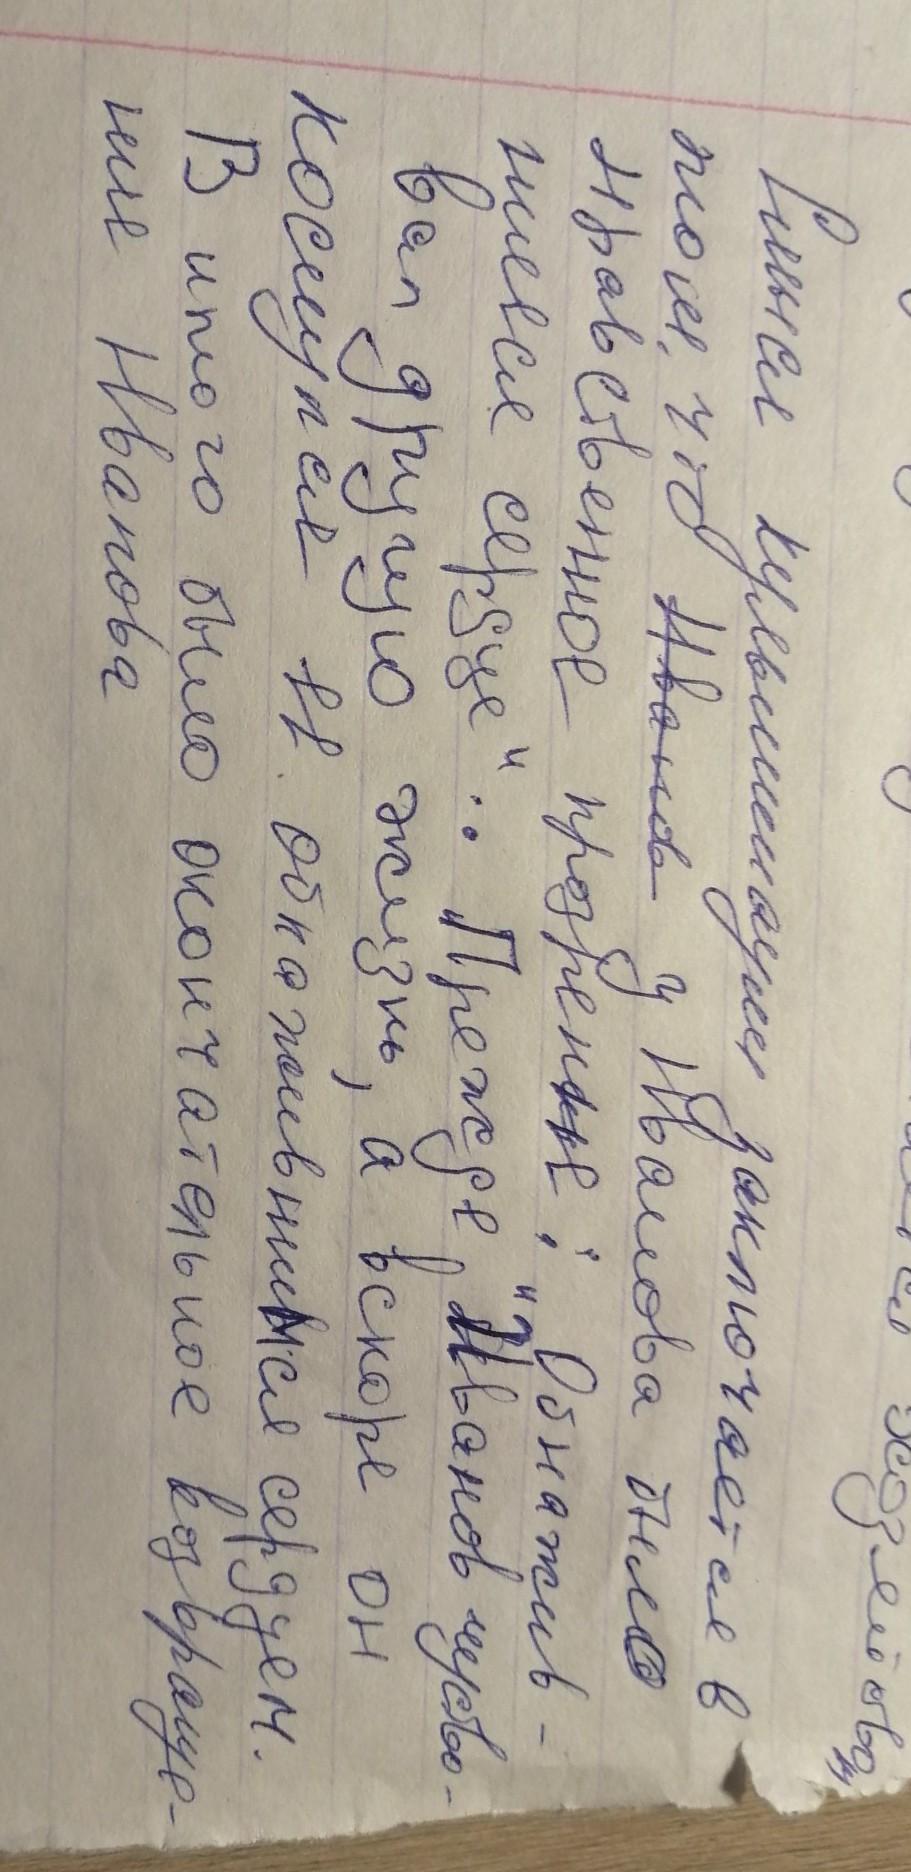 хозяйство,
Смысл кульминации заключается в
том, что Иванов у Иванова было
нравственное прозрение: "Обнажив-
шееся сердце". "Прежде Иванов чувство-
вал другую жизнь, а вскоре он
коснулся И. обнажившимся сердцем.
В итоге было окончательное возвраще-
ние Иванова